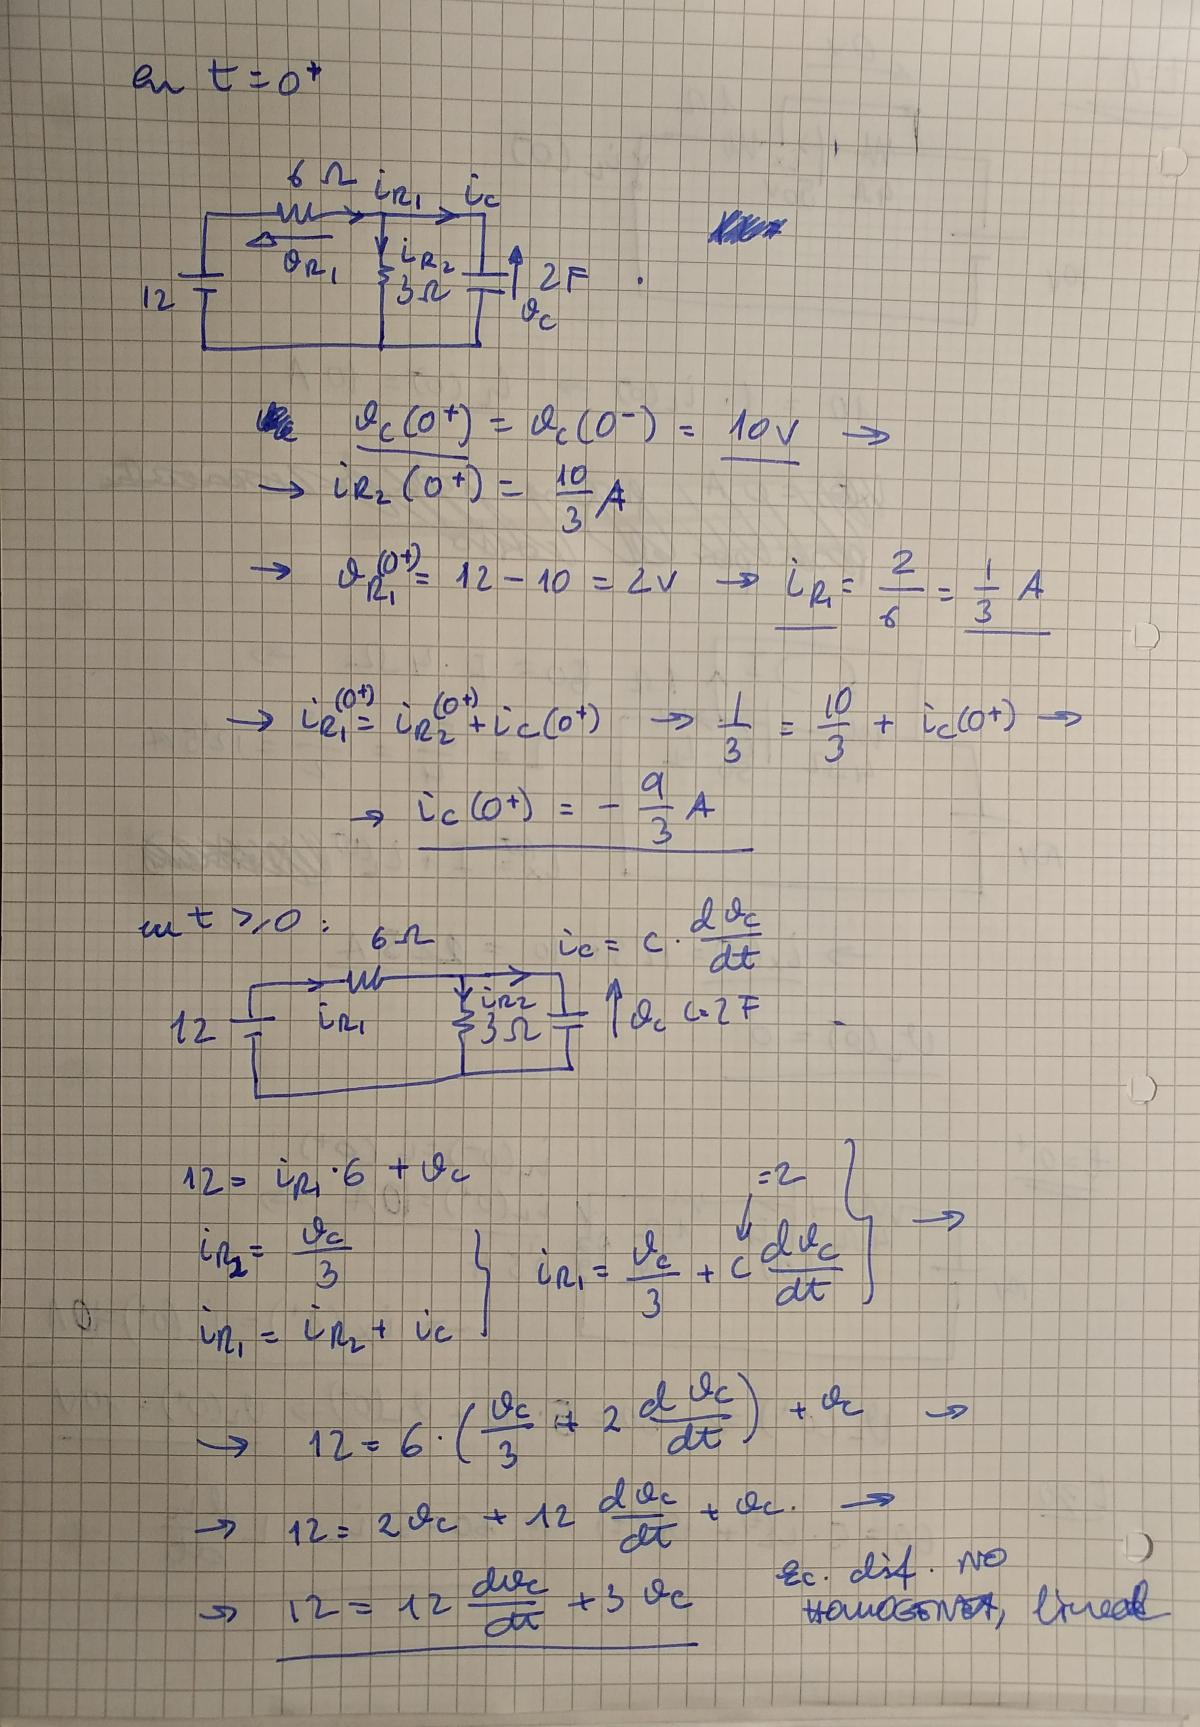 en t = 0⁺
6 Ω iR₁ ic
12 ϑR₁ iR₂ 3Ω 2F ϑc
ϑc(0⁺) = ϑc(0⁻) = 10V →
→ iR₂(0⁺) = 10/3 A
→ ϑR₁(0⁺) = 12 - 10 = 2V → iR₁ = 2/6 = 1/3 A
→ iR₁(0⁺) = iR₂(0⁺) + ic(0⁺) → 1/3 = 10/3 + ic(0⁺) →
→ ic(0⁺) = - 9/3 A
en t ≥ 0 : 6Ω ic = c · dϑc/dt
12 iR₁ iR₂ 3Ω ϑc C=2F
12 = iR₁ · 6 + ϑc
iR₂ = ϑc/3
iR₁ = iR₂ + ic } iR₁ = ϑc/3 + C dϑc/dt } →
=2
→ 12 = 6 · (ϑc/3 + 2 dϑc/dt) + ϑc →
→ 12 = 2ϑc + 12 dϑc/dt + ϑc. →
→ 12 = 12 dϑc/dt + 3ϑc
Ec. dif. NO
HOMOGENEA, lineal